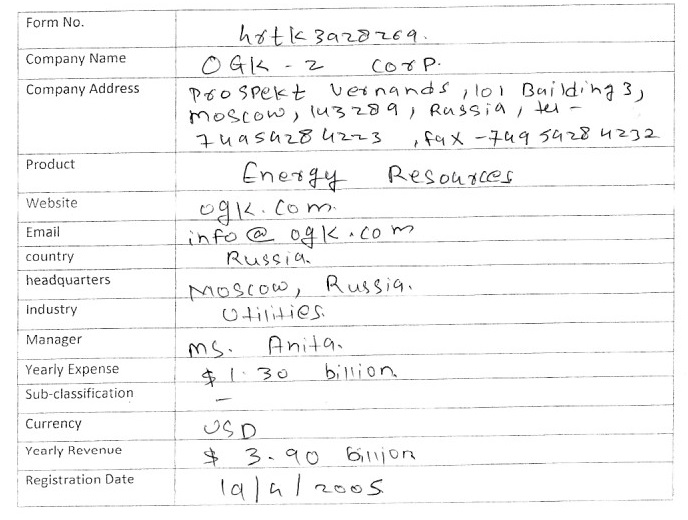 Form No. hrtk3928269.
Company Name OGK - 2 Corp.
Company Address Prospekt Vernands, 101 Building 3,
Moscow, 143289, Russia, tel -
74954284223 , fax - 74954284232
Product Energy Resources
Website ogk.com.
Email info@ogk.com
country Russia.
headquarters Moscow, Russia.
Industry Utilities.
Manager Ms. Anita.
Yearly Expense $ 1.30 billion
Sub-classification –
Currency USD
Yearly Revenue $ 3.90 billion
Registration Date 19/4/2005